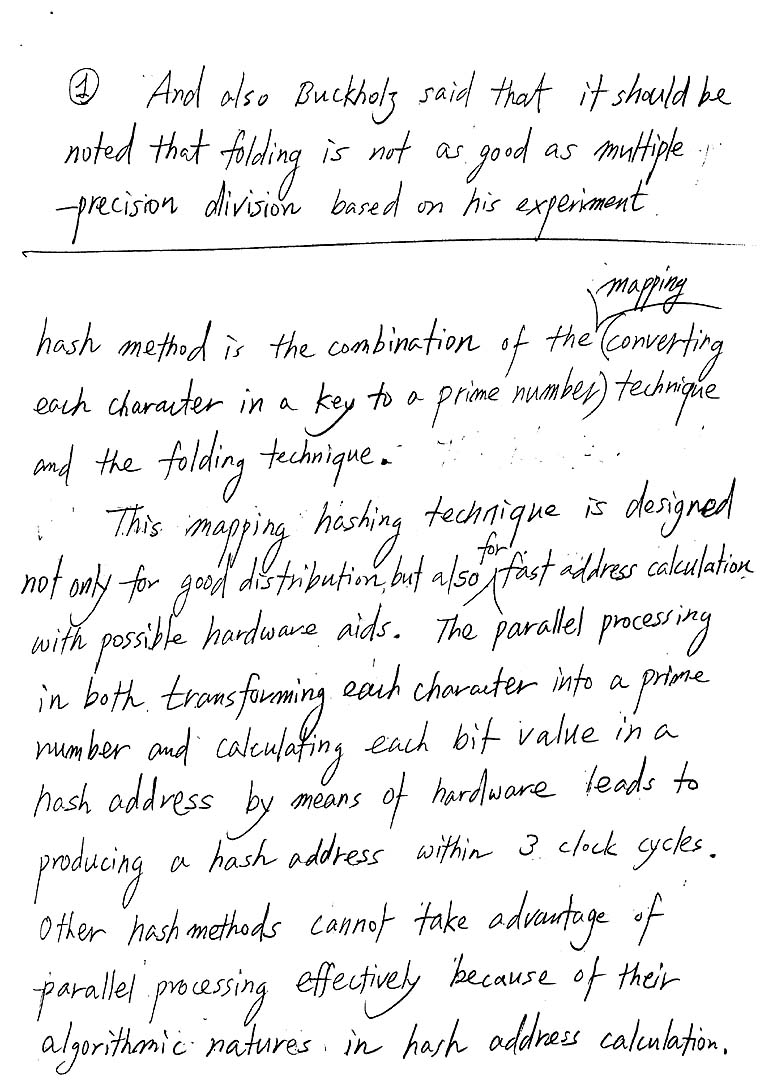 ① And also Buckholz said that it should be
noted that folding is not as good as multiple
-precision division based on his experiment.
mapping
hash method is the combination of the (converting
each character in a key to a prime number) technique
and the folding technique.
This mapping hashing technique is designed
for
not only for good distribution, but also fast address calculation
with possible hardware aids. The parallel processing
in both transforming each character into a prime
number and calculating each bit value in a
hash address by means of hardware leads to
producing a hash address within 3 clock cycles.
Other hash methods cannot take advantage of
parallel processing effectively because of their
algorithmic natures in hash address calculation.